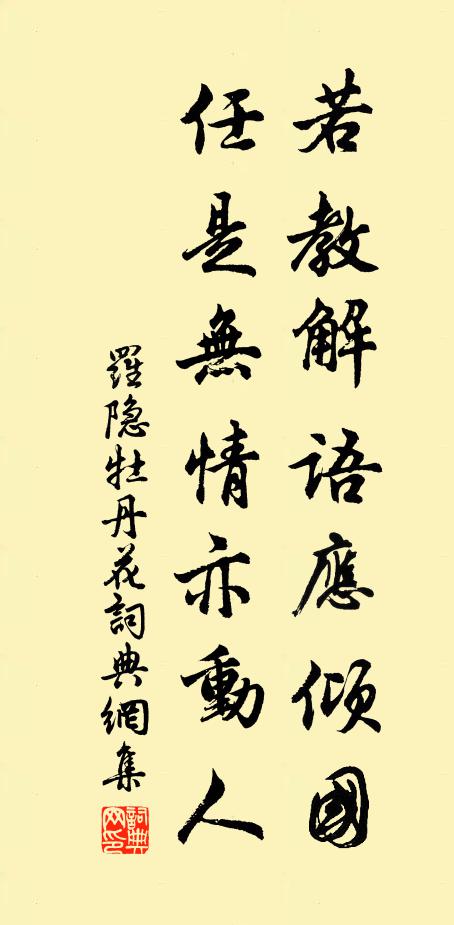 若教解語應傾國
任是無情亦動人
羅隐牡丹花詞典網集
詞典網印